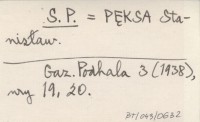 S.P. = PĘKSA Sta-
nisław.
Gaz. Podhala 3 (1938),
nry 19, 20.
BT/043/0632